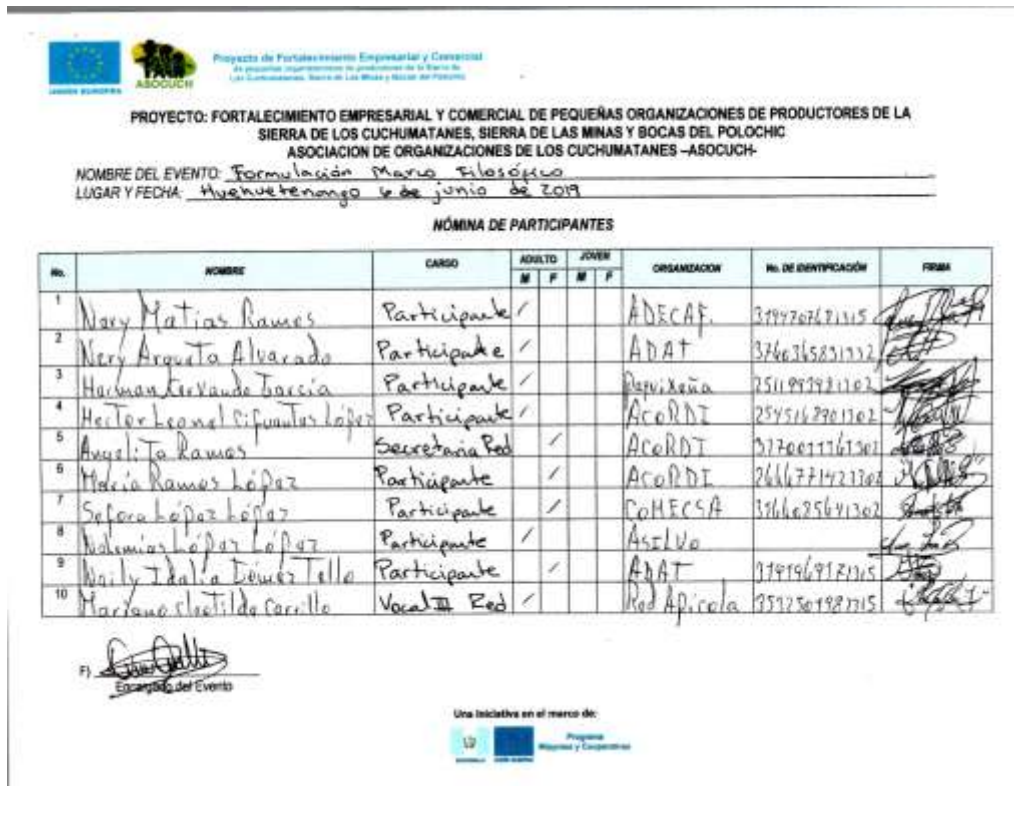 UNION EUROPEA
ASOCUCH
Proyecto de Fortalecimiento Empresarial y Comercial
de pequeñas organizaciones de productores de la Sierra de
Los Cuchumatanes, Sierra de Las Minas y Bocas del Polochic
PROYECTO: FORTALECIMIENTO EMPRESARIAL Y COMERCIAL DE PEQUEÑAS ORGANIZACIONES DE PRODUCTORES DE LA
SIERRA DE LOS CUCHUMATANES, SIERRA DE LAS MINAS Y BOCAS DEL POLOCHIC
ASOCIACION DE ORGANIZACIONES DE LOS CUCHUMATANES –ASOCUCH-
NOMBRE DEL EVENTO: Formulación Marco Filosófico
LUGAR Y FECHA: Huehuetenango 6 de junio de 2019
NÓMINA DE PARTICIPANTES
No. NOMBRE CARGO ADULTO JOVEN ORGANIZACION No. DE IDENTIFICACIÓN FIRMA
M F M F
1 Nery Matias Ramos Participante / ADECAF.
2 Nery Argueta Alvarado Participante / ADAT
3 Garcia Participante /
4 Hector Leonel Cifuentes López Participante / ACORDI
5 Angelita Ramos Secretaria Red / ACORDI
6 María Ramos López Participante / ACORDI
7 Sefora López López Participante / COMECSA
8 López López Participante / ASILVO
9 Idalia Tello Participante / ADAT
10 Cleotilde Carrillo Vocal III Red / Red Apicola
F)
Encargado del Evento
Una iniciativa en el marco de:
Programa
Mipymes y Cooperativas